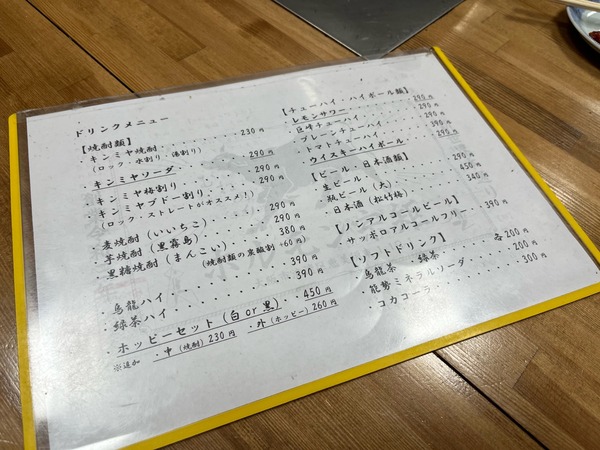 ドリンクメニュー
【焼酎類】
・キンミヤ焼酎・・・・・・・・・230円
（ロック・水割り・湯割り）
・キンミヤソーダ・・・・・・・・290円
・キンミヤ梅割り・・・・・・・・290円
・キンミヤブドー割り・・・・・・290円
（ロック・ストレートがオススメ！）
・麦焼酎（いいちこ）・・・・・・290円
・芋焼酎（黒霧島）・・・・・・・290円
・黒糖焼酎（まんこい）・・・・・380円
（焼酎類の炭酸割 +60円）
・烏龍ハイ・・・・・・・・・・・390円
・緑茶ハイ・・・・・・・・・・・390円
・ホッピーセット（白 or 黒）・・450円
※追加 ・中（焼酎）230円 ・外（ホッピー）260円
【チューハイ・ハイボール類】
・レモンサワー・・・・・・・・・290円
・巨峰チューハイ・・・・・・・・290円
・プレーンチューハイ・・・・・・290円
・トマトチューハイ・・・・・・・390円
・ウイスキーハイボール・・・・・290円
【ビール・日本酒類】
・生ビール・・・・・・・・・・・290円
・瓶ビール（大）・・・・・・・・450円
・日本酒（松竹梅）・・・・・・・340円
【ノンアルコールビール】
・サッポロアルコールフリー・・・390円
【ソフトドリンク】
・烏龍茶 緑茶・・・・・・・各200円
・能勢ミネラルソーダ・・・・・・200円
・コカコーラ・・・・・・・・・・300円